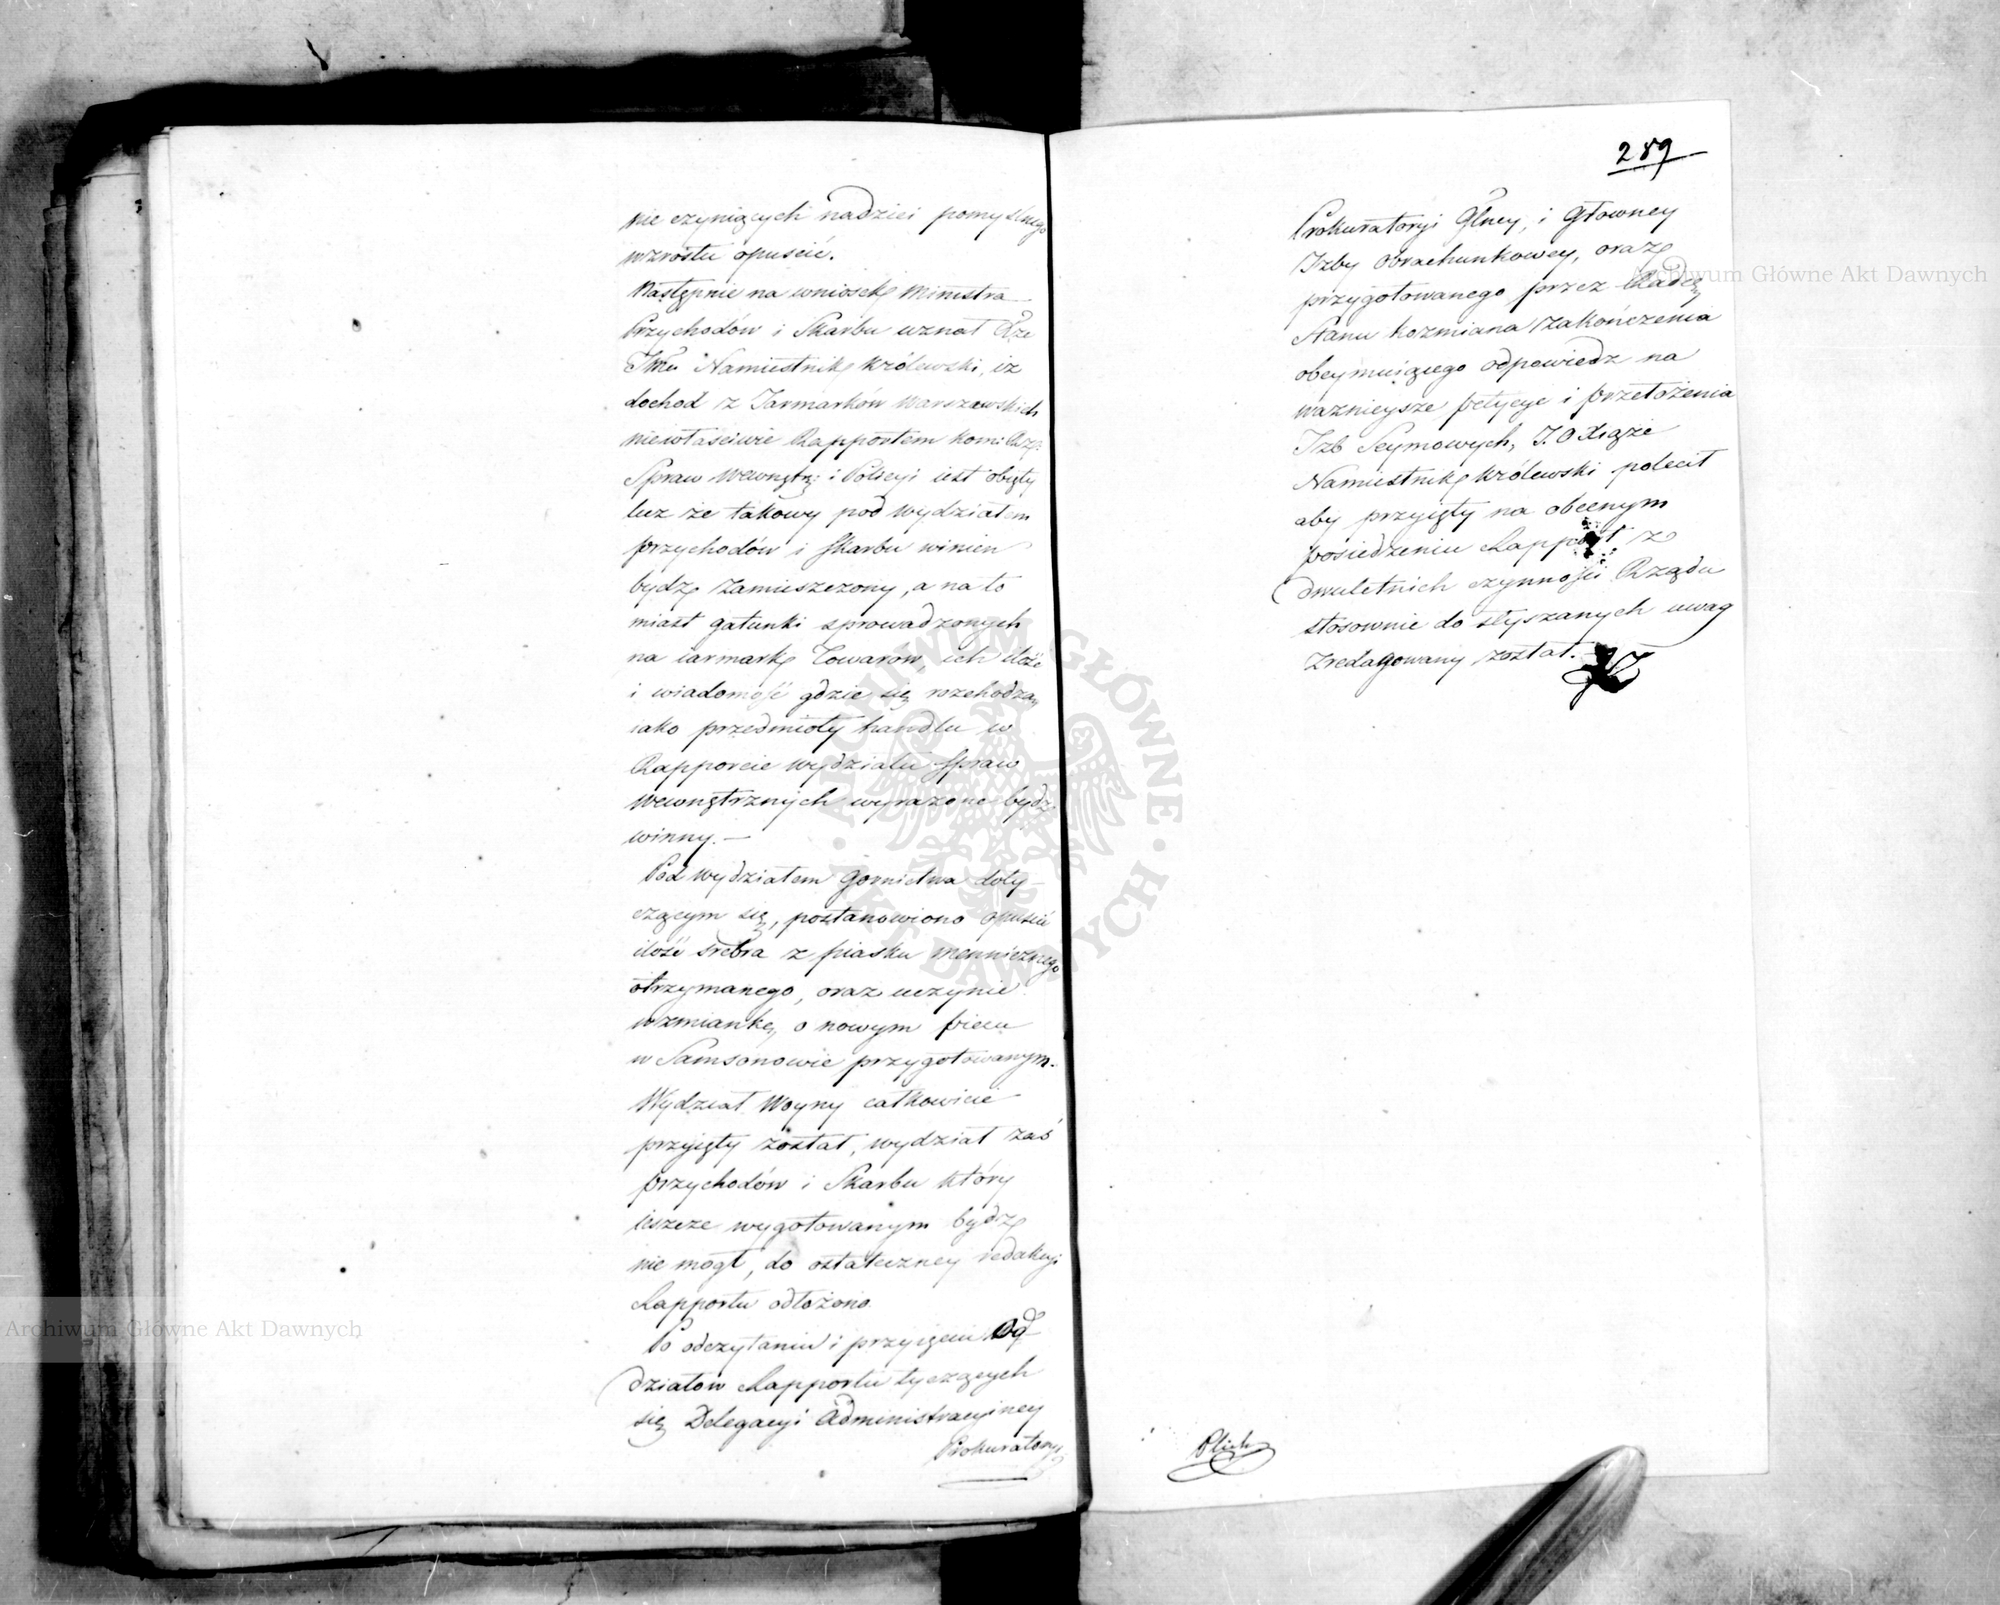 nie czyniących nadziei pomyślnego
wzrostu opuścić.
Następnie na wniosek Ministra
Przychodów i Skarbu uznał Xże
JMć Namiestnik Królewski, iż
dochod z Jarmarków Warszawskich
niewłaściwie Rapportem Kom: Rz:
Spraw Wewnętrz: i Policyi iest obięty
lecz że takowy pod wydziałem
przychodów i skarbu winien
bydź zamieszczony, a na to
miast gatunki sprowadzonych
na iarmark Towarow, ich ilość
i wiadomość gdzie się rozchodzą
iako przedmioty handlu w
Rapporcie wydziału spraw
wewnętrznych wyrażone bydź
winny. —
Pod wydziałem Gornictwa doty-
czącym się, postanowiono opuścić
ilość srebra z piasku mennicznego
otrzymanego, oraz uczynić
wzmiankę, o nowym piecu
w Samsonowie przygotowanym.
Wydział Woyny całkowicie
przyięty został, wydział zaś
przychodów i Skarbu który
ieszcze wygotowanym bydź
nie mogł, do ostateczney redakcyi
Rapportu odłożono.
Po odczytaniu i przyięciu Od-
działow Rapportu tyczących
się Delegacyi Administracyiney
Prokuratoryi
289
Prokuratoryi Głney, i Głowney
Izby Obrachunkowey, oraz
przygotowanego przez Radcę
Stanu Kozmiana zakończenia
obeymuiącego odpowiedz na
ważnieysze petycye i przełożenia
Izb Seymowych, J.O Xiąże
Namiestnik Królewski polecił
aby przyięty na obecnym
posiedzeniu Rapport z
dwuletnich czynności Rządu
stosownie do słyszanych uwag
zredagowany został.
Plich
Archiwum Główne Akt Dawnych
Archiwum Główne Akt Dawnych
ARCHIWUM GŁÓWNE AKT DAWNYCH